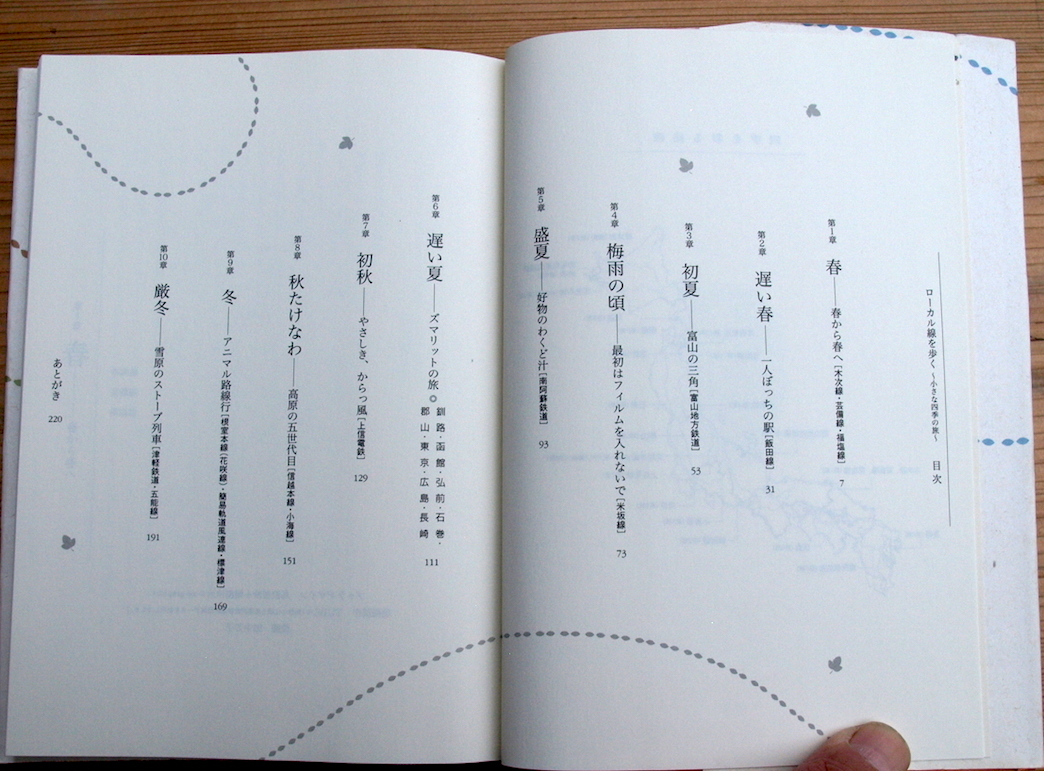 ローカル線を歩く ～小さな四季の旅～ 目次
第1章 春――春から春へ［木次線・芸備線・福塩線］ 7
第2章 遅い春――一人ぼっちの駅［飯田線］ 31
第3章 初夏――富山の三角［富山地方鉄道］ 53
第4章 梅雨の頃――最初はフィルムを入れないで［米坂線］ 73
第5章 盛夏――好物のわくど汁［南阿蘇鉄道］ 93
第6章 遅い夏――ズマリットの旅◎釧路・函館・弘前・石巻・
郡山・東京・広島・長崎 111
第7章 初秋――やさしき、からっ風［上信電鉄］ 129
第8章 秋たけなわ――高原の五世代目［信越本線・小海線］ 151
第9章 冬――アニマル路線行［根室本線（花咲線）・簡易軌道風連線・標津線］ 169
第10章 厳冬――雪原のストーブ列車［津軽鉄道・五能線］ 191
あとがき 220